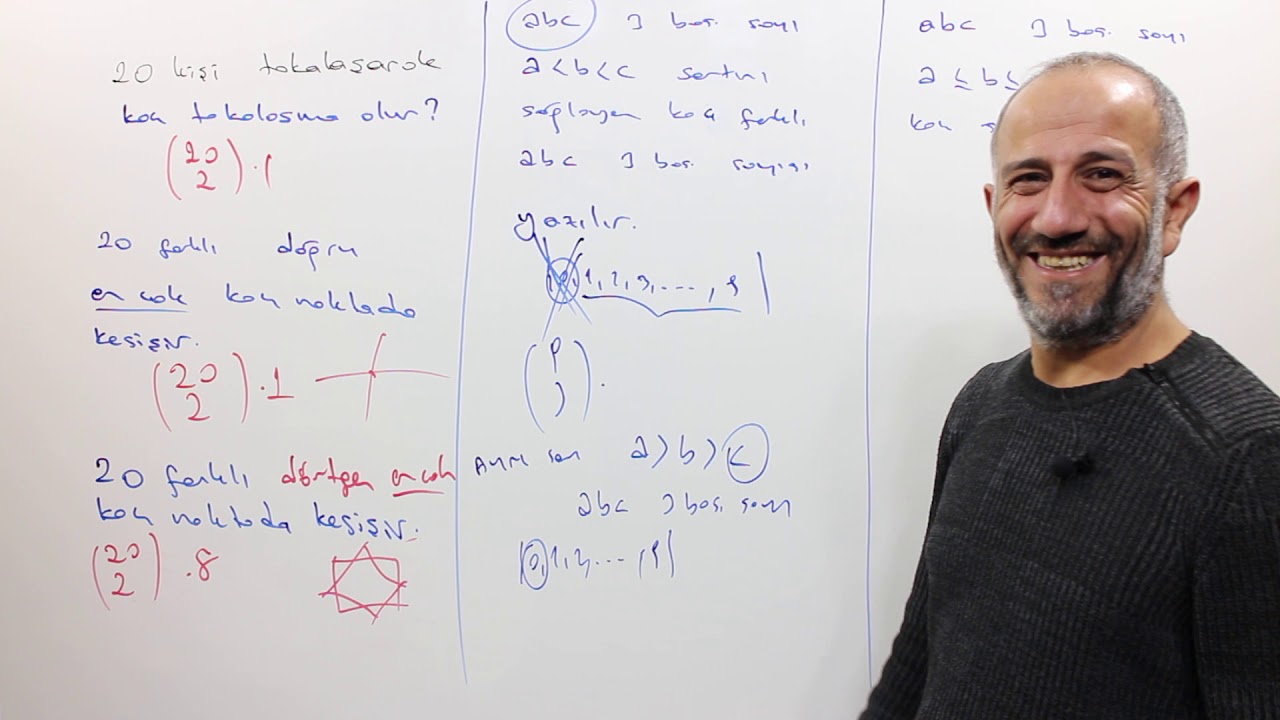 20 kişi tokalaşarak
kaç tokalaşma olur?
(20
2) .1
20 farklı doğru
en çok kaç noktada
kesişir.
(20
2) .1
20 farklı dörtgen en çok
kaç noktada kesişir.
(20
2) .8
abc 3 bas. sayı
a<b<c şartını
sağlayan kaç farklı
abc 3 bas. sayısı
yazılır.
1, 2, 3, ..., 9
(9
3).
Aynı soru a>b>c
abc 3 bas. sayı
0, 1, 2, ..., 9
abc 3 bas. sayı
a ≤ b ≤
kaç